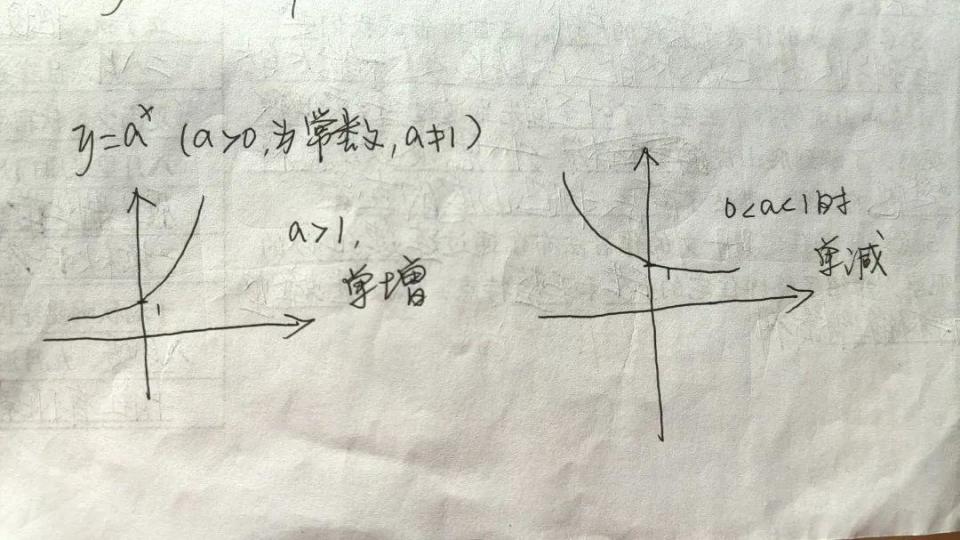 y=aˣ (a>0,为常数,a≠1)
a>1,
单增
1
0<a<1时
单减
1